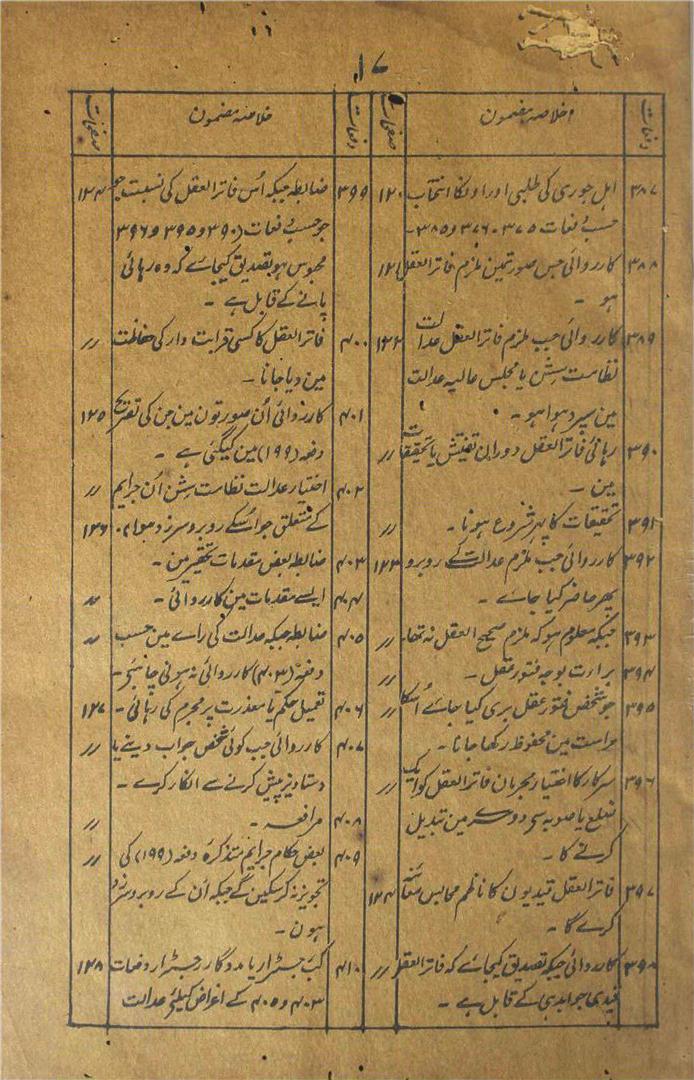 ۱۷
دفعات خلاصہ مضمون صفحات
۳۸۷ اہل جوری کی طلبی اور اونکا انتخاب ۱۲۰
حسب دفعات ۳۷۵ - ۳۷۶ و ۳۸۵ -
۳۸۸ کارروائی جس صورتمین ملزم فاتر العقل ۱۲۱
ہو -
۳۸۹ کارروائی جب ملزم فاتر العقل عدالت ۱۲۲
نظامت سشن یا مجلس عالیہ عدالت
مین سپرد ہوا ہو -
۳۹۰ رہائی فاتر العقل دوران تفتیش یا تحقیقات 〃
مین -
۳۹۱ تحقیقات کا پہر شروع ہونا - 〃
۳۹۲ کارروائی جب ملزم عدالت کے روبرو ۱۲۳
پھر حاضر کیا جاے -
۳۹۳ جبکہ معلوم ہو کہ ملزم صحیح العقل نہ تھا - 〃
۳۹۴ برارت بوجہ فتور عقل - 〃
۳۹۵ جو شخص بفتور عقل بری کیا جاے اُسکا 〃
حراست مین محفوظ رکھا جانا -
۳۹۶ سرکار کا اختیار مجرمان فاتر العقل کو ایک 〃
ضلع یا صوبہ سے دوسرے مین تبدیل
کرنے کا -
۳۹۷ فاتر العقل قیدیون کا ناظم محابس معائنہ ۱۲۴
کرے گا -
۳۹۸ کارروائی جبکہ تصدیق کیجاے کہ فاتر العقل 〃
قیدی جوابدہی کے قابل ہے -
دفعات خلاصہ مضمون صفحات
۳۹۹ ضابطہ جبکہ اُس فاتر العقل کی نسبت جو ۱۲۴
جو حسب دفعات (۳۹۰ و ۳۹۵ و ۳۹۶
محبوس ہو تصدیق کیجاے کہ وہ رہائی
پانے کے قابل ہے -
۴۰۰ فاتر العقل کا کسی قرابت دار کی حفاظت 〃
مین دیا جانا -
۴۰۱ کارروائی اُن صورتون مین جن کی تصریح ۱۲۵
دفعہ (۱۹۹) مین کیگئی ہے -
۴۰۲ اختیار عدالت نظامت سشن اُن جرایم 〃
کے متعلق جو اسکے روبرو سرزد ہوں - ۱۲۶
۴۰۳ ضابطہ بعض مقدمات تحقیر مین -
۴۰۴ ایسے مقدمات مین کارروائی - 〃
۴۰۵ ضابطہ جبکہ عدالت کی راے مین حسب 〃
دفعہ (۴۰۳) کارروائی نہ ہونی چاہیئے -
۴۰۶ تعمیل حکم یا معذرت پر مجرم کی رہائی - ۱۲۷
۴۰۷ کارروائی جب کوئی شخص جواب دینے یا 〃
دستاویز پیش کرنے سے انکار کرے -
۴۰۸ مرافعہ - 〃
۴۰۹ بعض حکام جرایم متذکرہ دفعہ (۱۹۹) کی 〃
تجویز نہ کرسکین گے جبکہ اُن کے روبرو سرزد
ہون -
۴۱۰ کب رجسٹرار یا مددگار رجسٹرار دفعات ۱۲۸
۴۰۳ و ۴۰۵ کے اغراض کیلئے عدالت